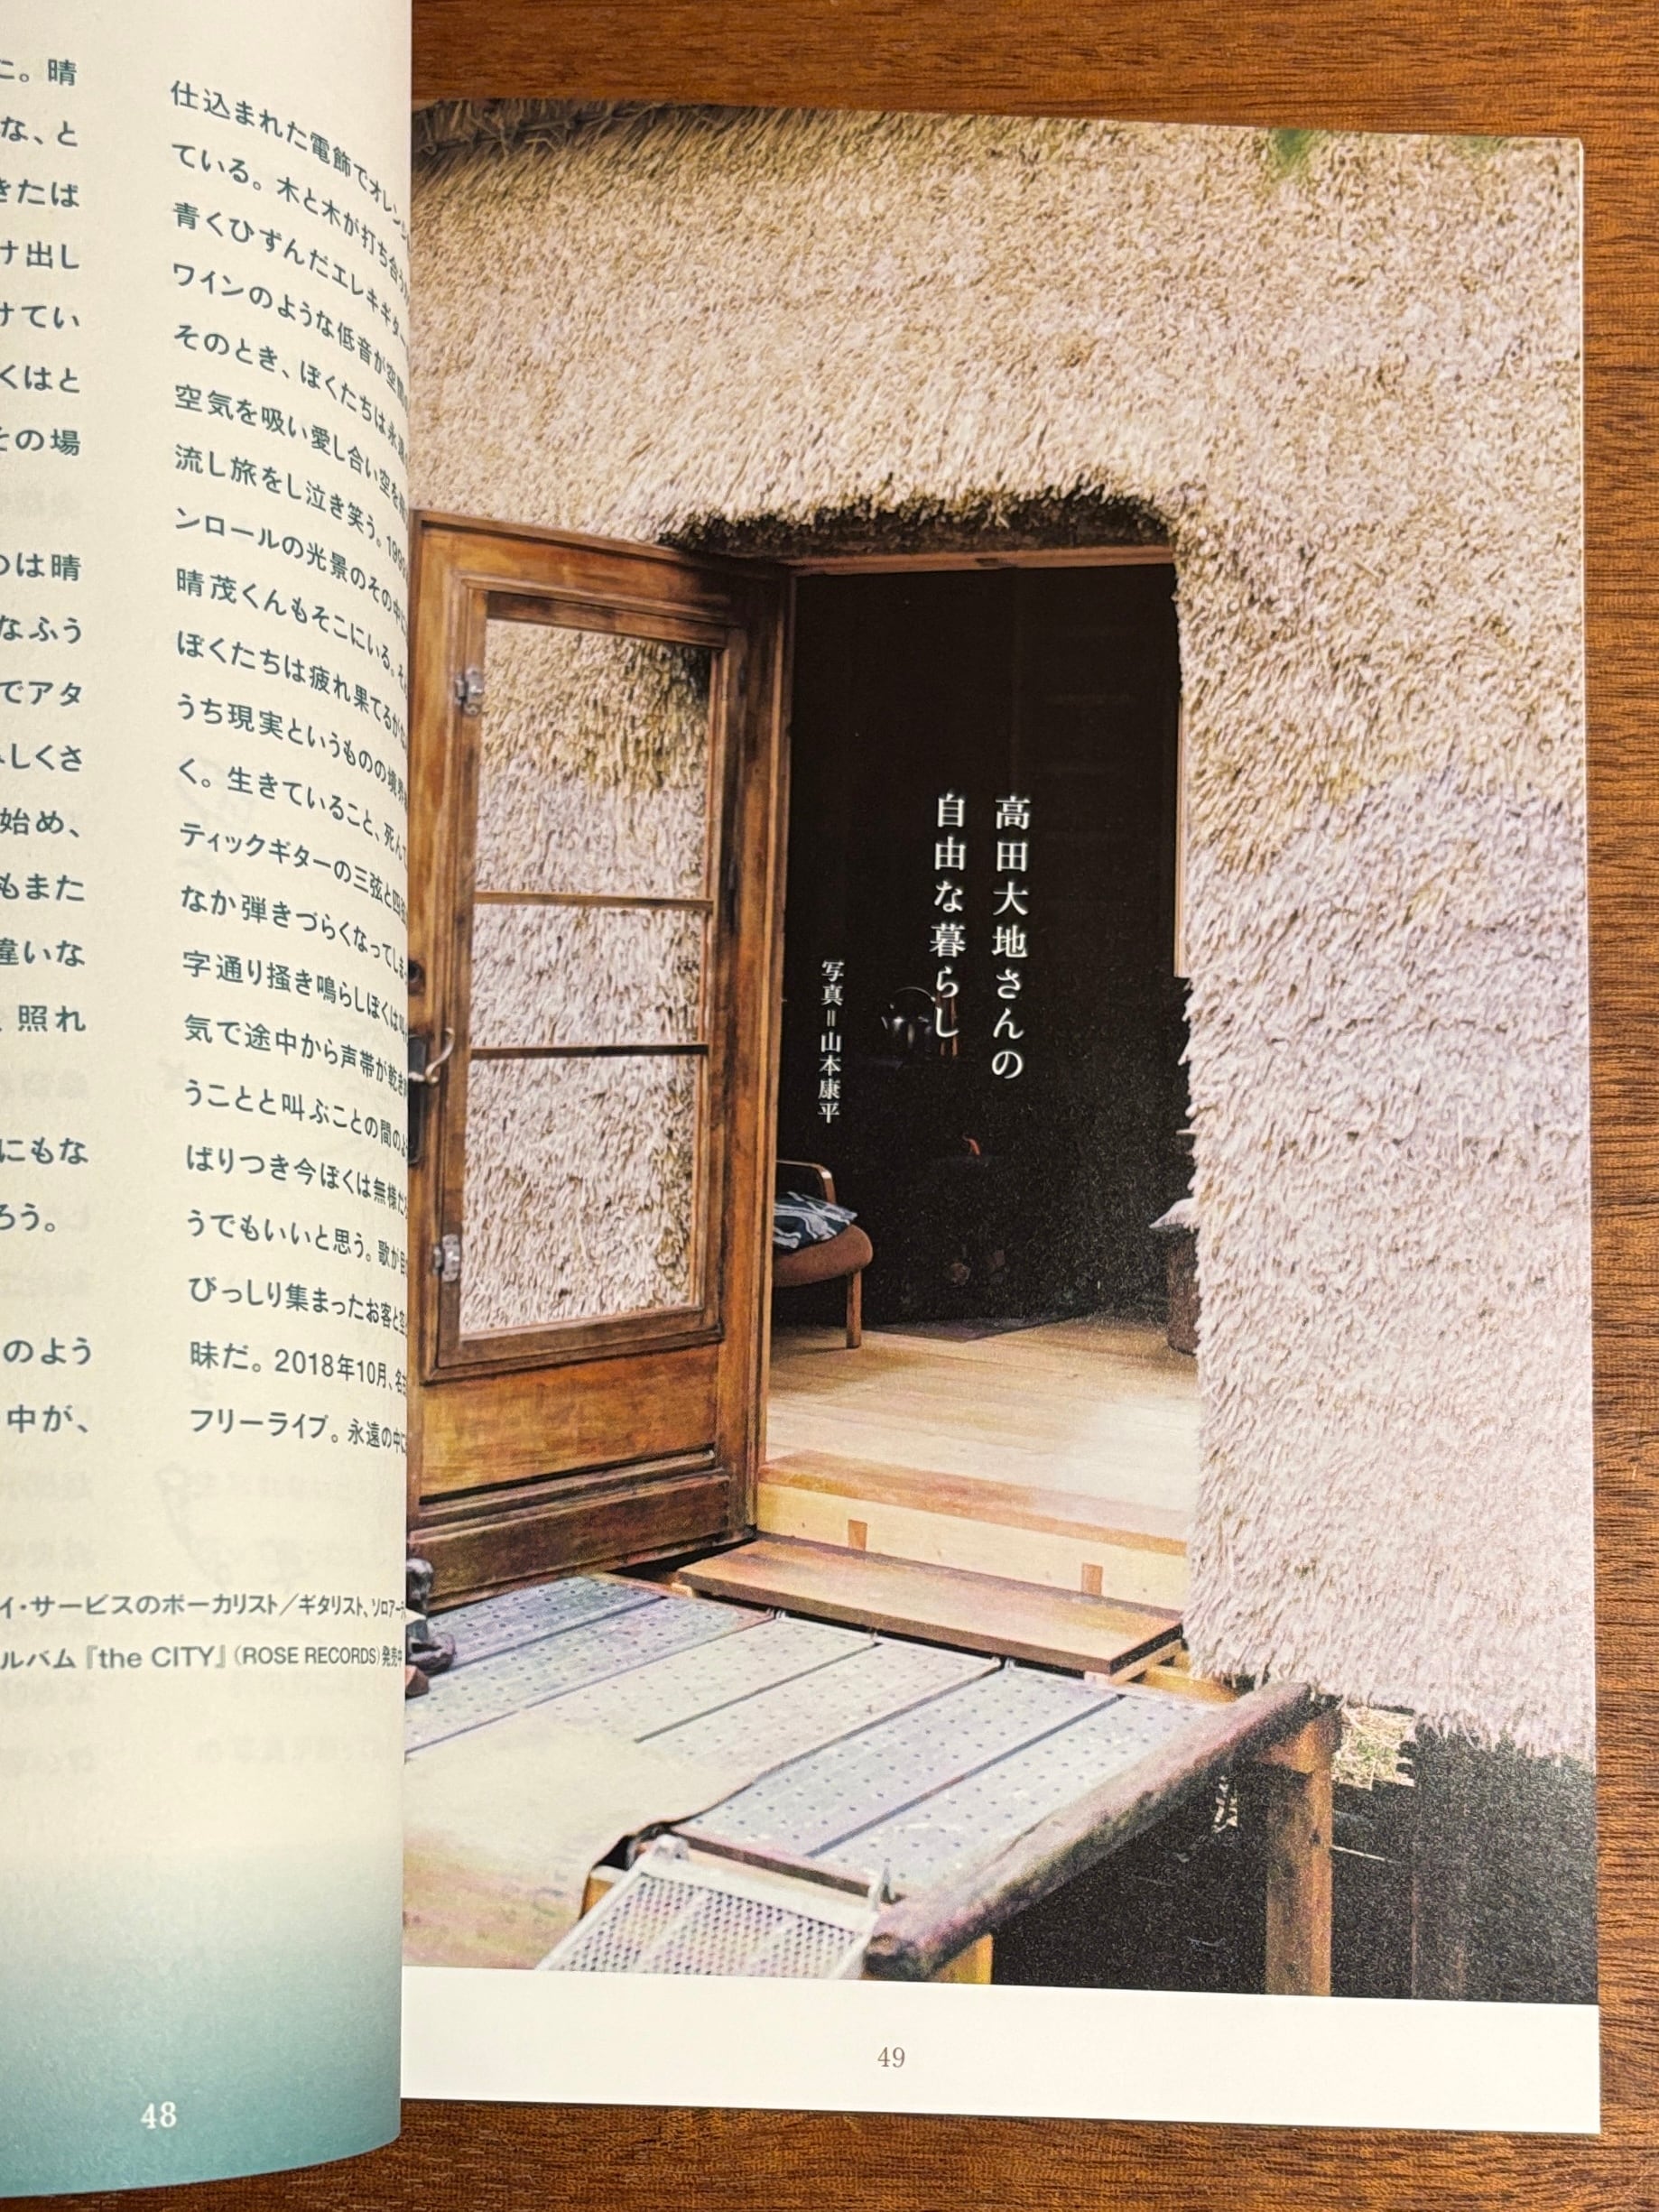 に。晴
な、と
きたば
け出し
けてい
くはと
その場
のは晴
なふう
でアタ
しくさ
始め、
もまた
違いな
照れ
にもな
ろう。
のよう
中が、
仕込まれた電飾でオレンジ
ている。木と木が打ち合う
青くひずんだエレキギター
ワインのような低音が空間
そのとき、ぼくたちは永遠
空気を吸い愛し合い空を
流し旅をし泣き笑う。199
ンロールの光景のその中に
晴茂くんもそこにいる。そ
ぼくたちは疲れ果てるが
うち現実というものの境界
く。生きていること、死んで
ティックギターの三弦と四
なか弾きづらくなってしま
字通り掻き鳴らしぼくは
気で途中から声帯が乾き
うことと叫ぶことの間の
ばりつき今ぼくは無様だ
うでもいいと思う。歌が
びっしり集まったお客と空
昧だ。2018年10月、名
フリーライブ。永遠の中に
イ・サービスのボーカリスト／ギタリスト、ソロアー
ルバム『the CITY』（ROSE RECORDS）発売中
48
高田大地さんの
自由な暮らし
写真＝山本康平
49